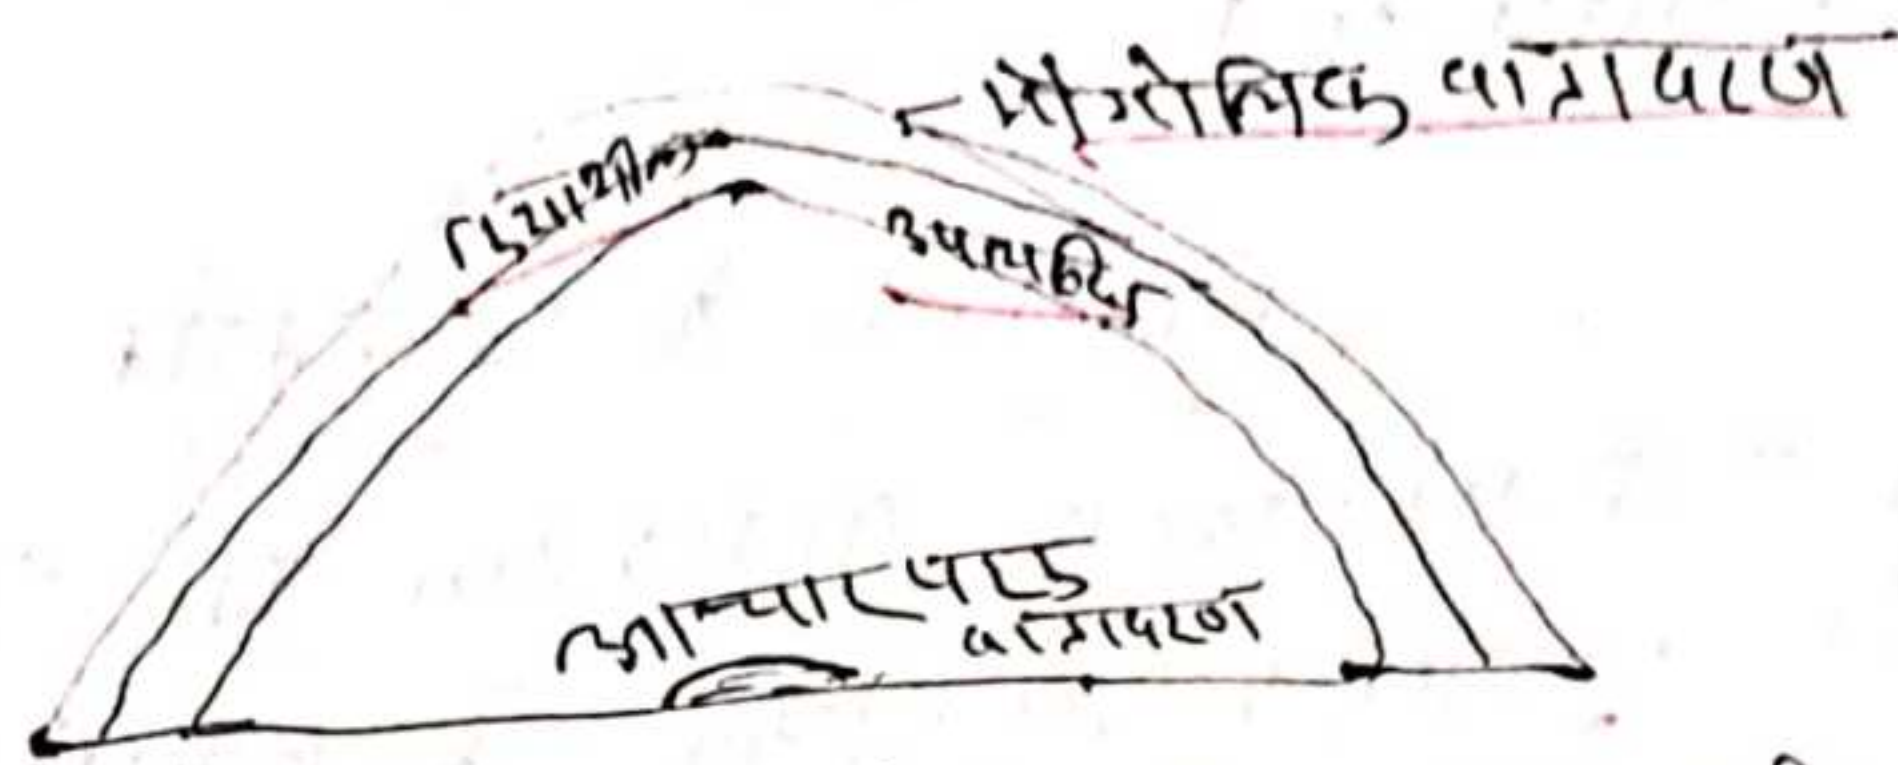 भौगोलिक वातावरण
क्रियाशील
उपलब्धि
आचारपरक
वातावरण